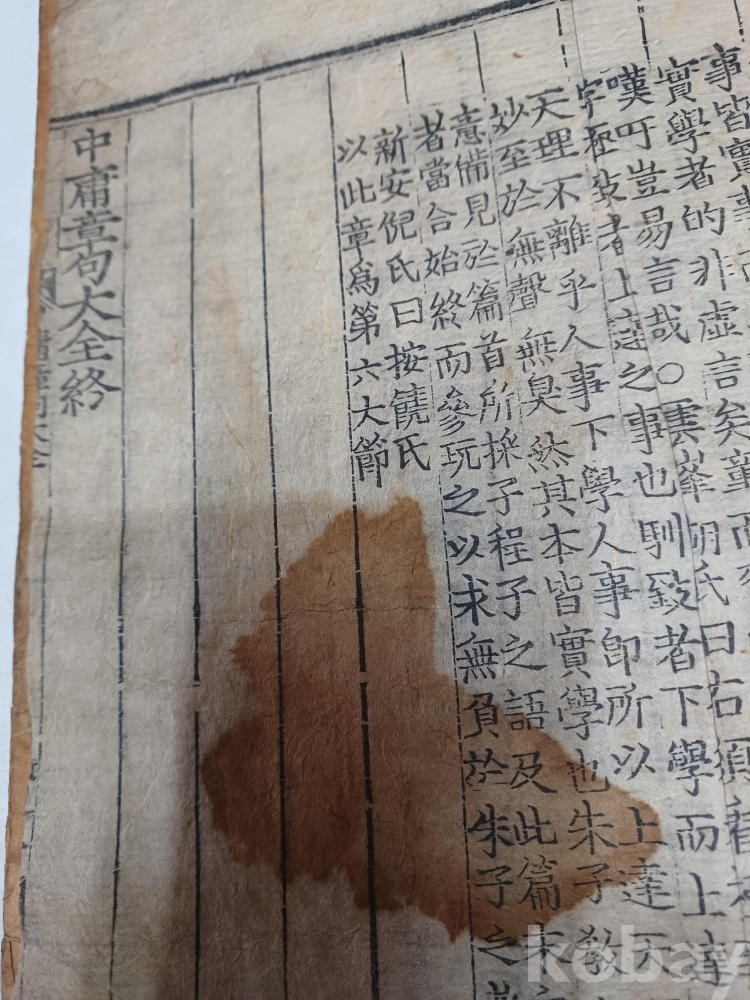 事皆實事
實學者的非虛言矣童而
嘆吁豈易言哉○雲峯胡氏曰右須看
字極致者上達之事也馴致者下學而上達
天理不離乎人事下學人事即所以上達天
妙至於無聲無臭然其本皆實學也朱子教
意備見於篇首所採子程子之語及此篇末
者當合始終而參玩之以求無負於朱子之
新安倪氏曰按饒氏
以此章爲第六大節
中庸章句大全終
庸章句大全
kobay